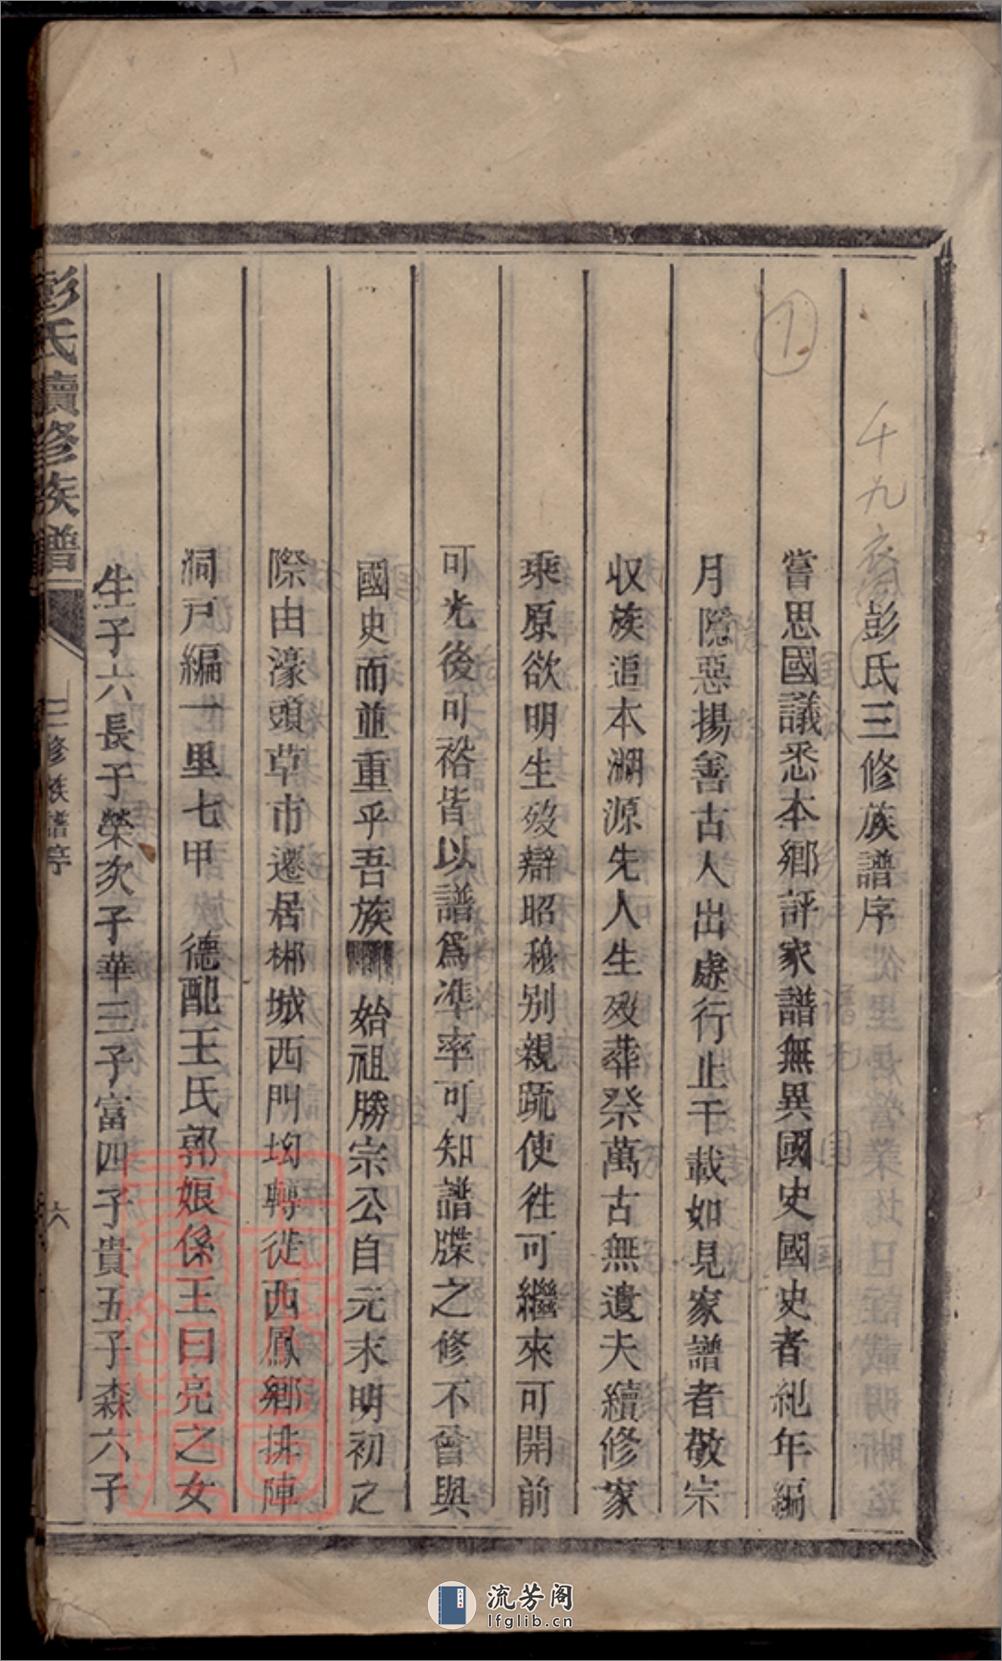 彭氏三修族譜序
嘗思國議悉本鄉評家譜無異國史國史者紀年編
月隱惡揚善古人出處行止千載如見家譜者敬宗
収族追本溯源先人生歿葬祭萬古無遺夫續修家
乘原欲明生歿辯昭穆别親疏使徃可繼來可開前
可光後可裕皆以譜爲凖率可知譜牒之修不啻與
國史而並重乎吾族 始祖勝宗公自元末明初之
際由濠頭草市遷居郴城西門坳轉從西鳳鄉排陣
洞戸編一里七甲 德配王氏郭娘係王曰亮之女
生子六長子榮次子華三子富四子貴五子森六子
彭氏續修族譜
三修族譜序
六
千九
1
流芳阁
lfglib.cn